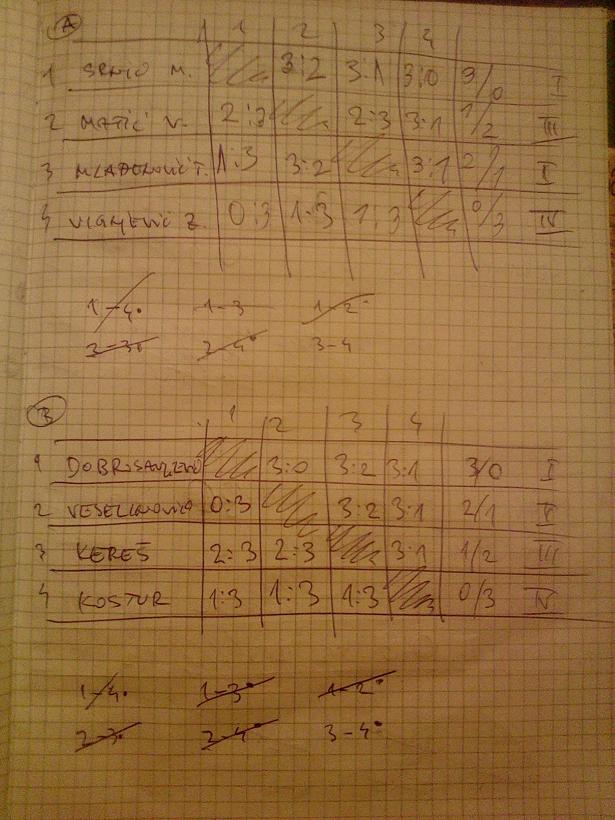 A 1 2 3 4
1 M. 3:2 3:1 3:0 3/0 I
2 MATIĆ V. 2:3 2:3 3:1 1/2 III
3 MLADENOVIĆ T. 1:3 3:2 3:1 2/1 I
4 Z. 0:3 1:3 1:3 0/3 IV
1-4 1-3 1-2
2-3 2-4 3-4
B 1 2 3 4
1 3:0 3:2 3:1 3/0 I
2 0:3 3:2 3:1 2/1 II
3 KEREŠ 2:3 2:3 3:1 1/2 III
4 KOSTUR 1:3 1:3 1:3 0/3 IV
1-4 1-3 1-2
2-3 2-4 3-4